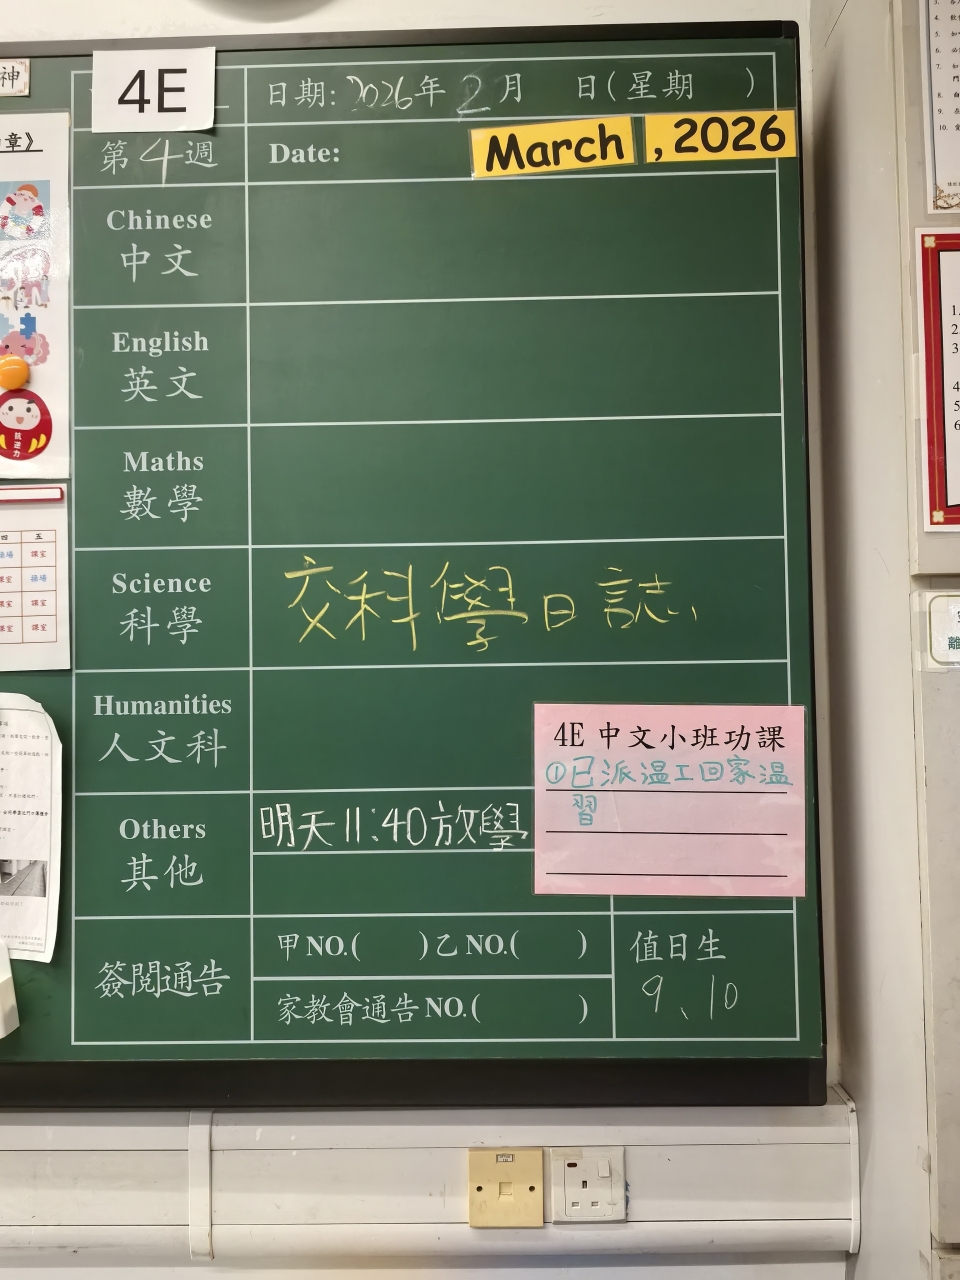 神
4E
日期: 2026年 2月 日(星期 )
章》
第4週
Date: March , 2026
Chinese
中文
English
英文
Maths
數學
抗逆力
四 五
課室
課室 操場
課室 課室
課室 課室
Science
科學
交科學日誌
Humanities
人文科
4E 中文小班功課
①已派溫工回家溫
習
Others
其他
明天11:40放學
簽閱通告
甲NO.( )乙NO.( )
家教會通告NO.( )
值日生
9、10